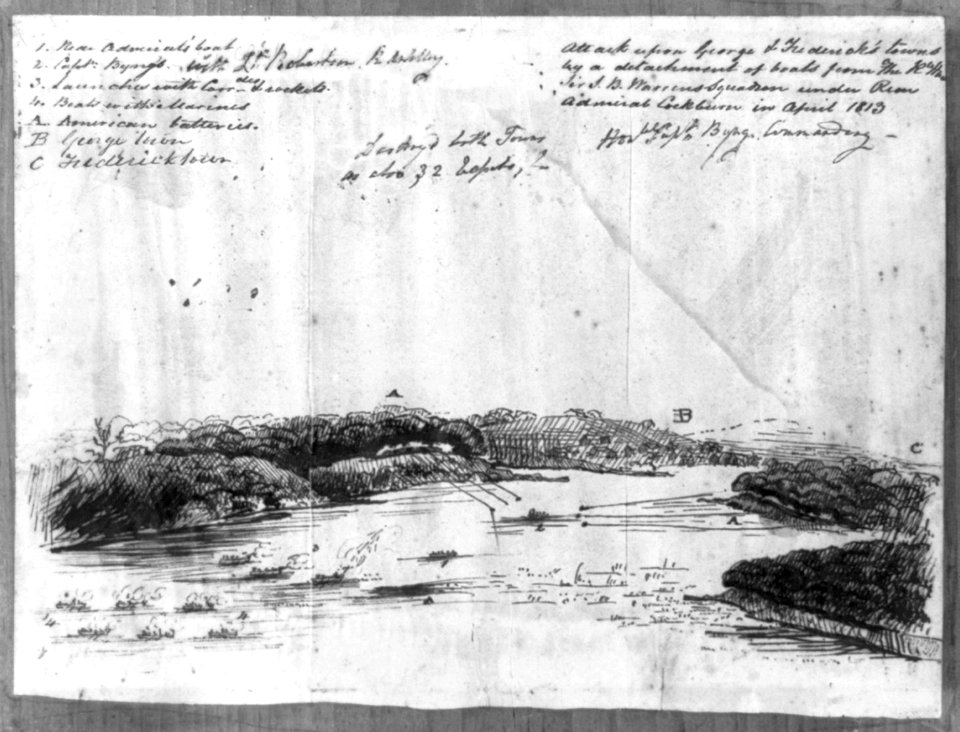 1. Rear Admiral's boat
2. Captn. Byng's with Lt. Robertson R.
3. Launches with Carrdes & rockets.
4. Boats with Marines
A American batteries.
B George town
C Fredericktown
Destroy'd both Towns
as also 32
Attack upon George & Frederick's towns
by a detachment of boats from the Rt. Hble
Sir J. B. Warrens Squadron under Rear
Admiral Cockburn in April 1813
Honble Captn. Byng. Commanding
A
B
C
2
A
3
1
4
4